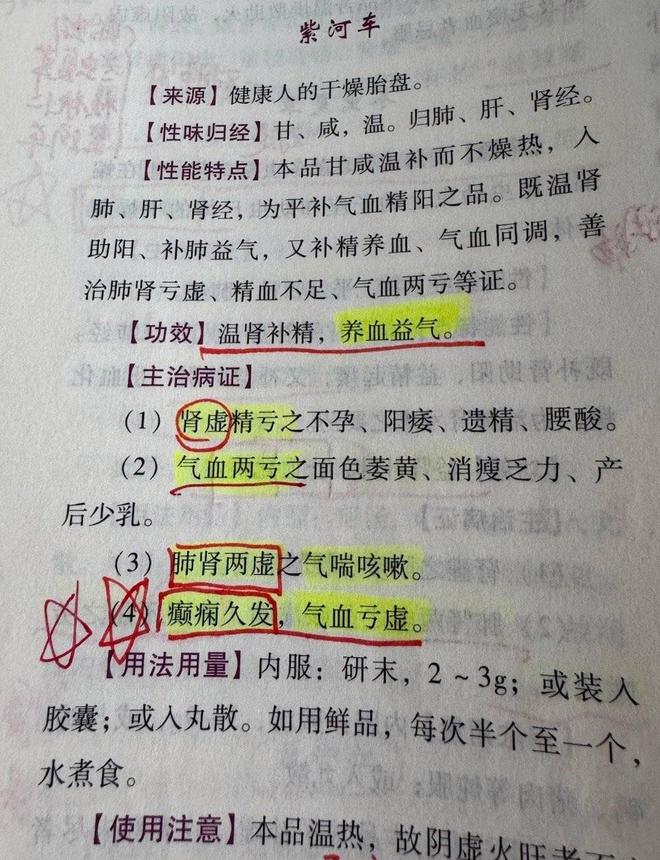 紫河车
【来源】健康人的干燥胎盘。
【性味归经】甘、咸，温。归肺、肝、肾经。
【性能特点】本品甘咸温补而不燥热，入
肺、肝、肾经，为平补气血精阳之品。既温肾
助阳、补肺益气，又补精养血、气血同调，善
治肺肾亏虚、精血不足、气血两亏等证。
【功效】温肾补精，养血益气。
【主治病证】
（1）肾虚精亏之不孕、阳痿、遗精、腰酸。
（2）气血两亏之面色萎黄、消瘦乏力、产
后少乳。
（3）肺肾两虚之气喘咳嗽。
（4）癫痫久发，气血亏虚。
【用法用量】内服：研末，2～3g；或装入
胶囊；或入丸散。如用鲜品，每次半个至一个，
水煮食。
【使用注意】本品温热，故阴虚火旺者不